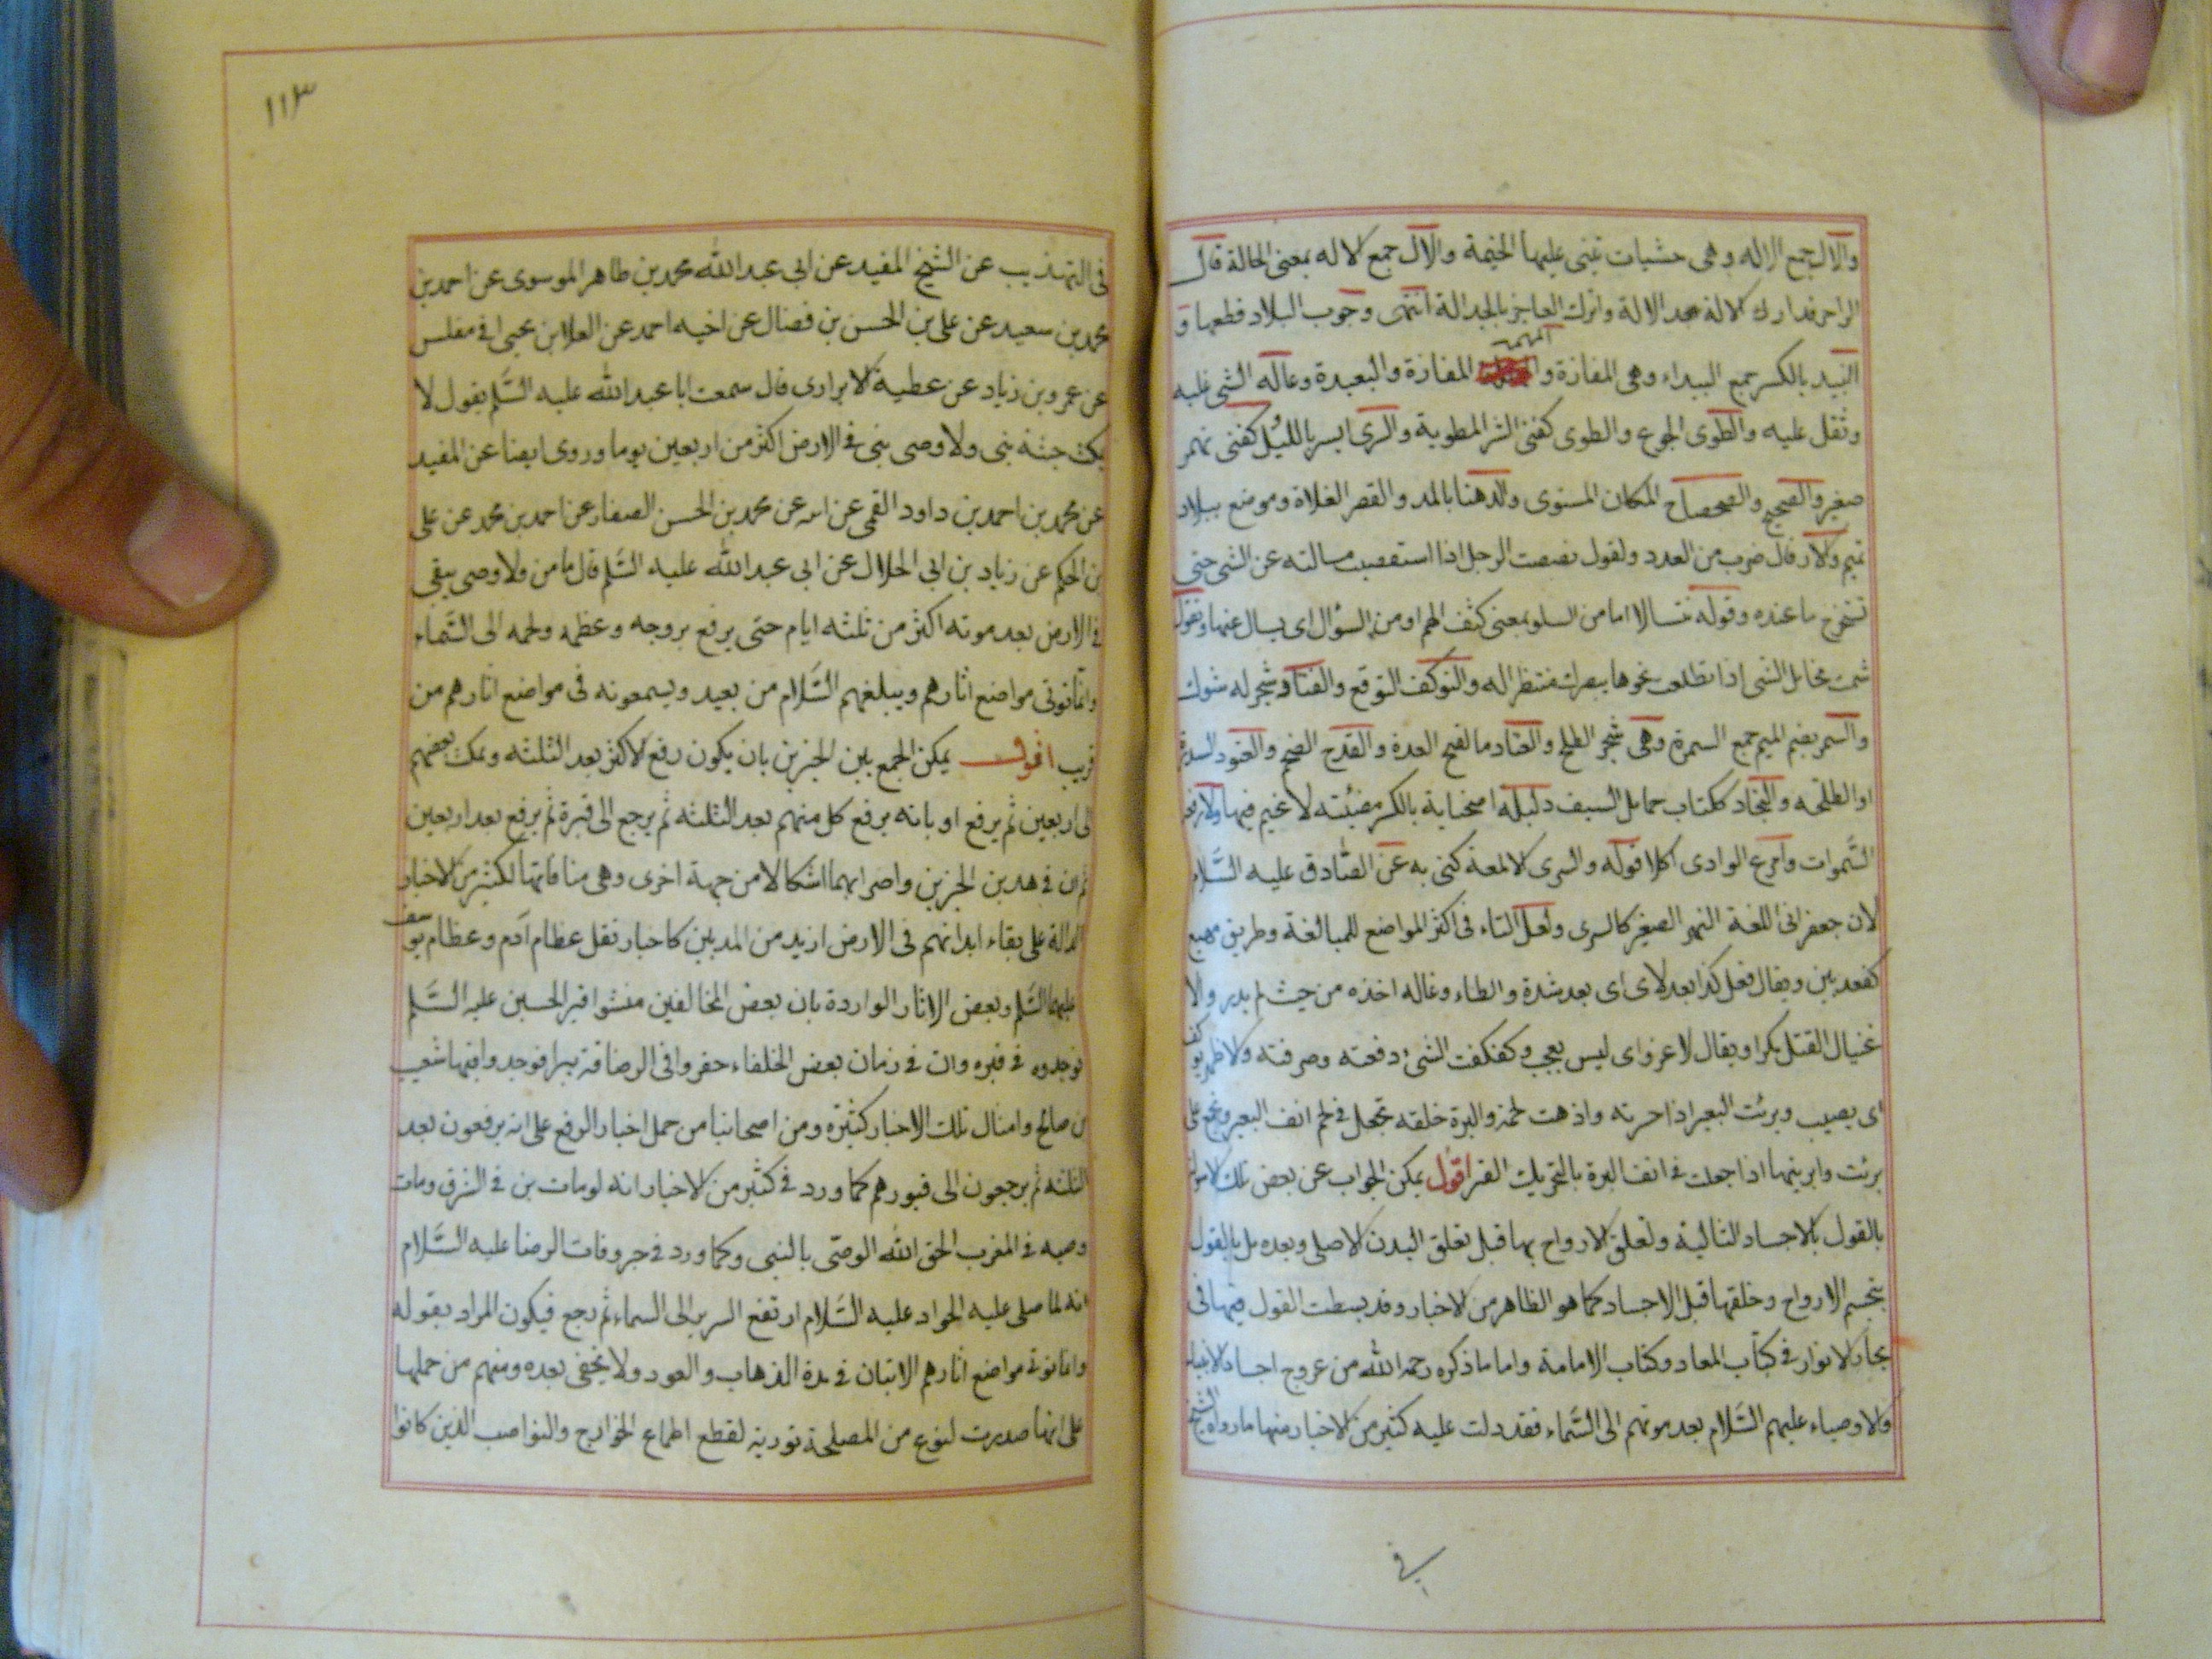 والآل جمع الإله وهى خشبات تبنى عليها الخيمة والآل جمع الاله بمعنى الحالة قال
الراجز قد ارك الالة بعد الالة واترك العاجز بالجدالة انتهى وجوب البلاد قطعها و
البيد بالكسر جمع البيداء وهى المفازة والمهمه المفازة والبعيدة وعاله الشى غلبه
وثقل عليه والطوى الجوع والطوى كغنى البئر المطوية والسرى السير بالليل كغنى نهر
صغير والصحيح والصحصاح المكان المستوى والدهنا بالمد والقصر الفلاة وموضع ببلاد
تميم وقال ضرب من العدد وتقول نصصت الرجل اذا استقصيت مسالته عن الشى حتى
تستخرج ما عنده وقوله نتسالا اما من السلو بمعنى كشف الهم او من السؤال اى يسال عنها وتقول
شمت مخايل الشى اذا تطلعت نحوها ببصرك منتظرا له والتوكف التوقع والقتاد شجر له شوك
والسمر بضم الميم جمع السمرة وهى شجر الطلح والعتاد ما لفتح العدة والقدح الضخم والعتود السدرة
او الطلحه والنجاد ككتاب حمايل السيف دليله اضحيانة بالكسر مضيئة لا غيم فيها
السموات وامرع الوادى اكلا قوله والسرى الالمعة كنى به عن الصادق عليه السلام
لان جعفر فى اللغة النهر الصغير كالسرى ولعل التاء فى اكثر المواضع للمبالغة وطريق مهيع
كمقعد بين ويقال فعل كذا بعد لاى اى بعد شدة وابطاء وغاله اخذه من حيث لم يدر والا
غتيال القتل مكرا ويقال لا غرو اى ليس بعجب وكفكفت الشى دفعته وصرفته
اى يصيب وبرئت البعير اذا حسرته واذهبت لحمه والبرة حلقه تجعل فى لحم انف البعير وتجمع على
برئت وابريتها اذا جعلت فى انف البرة بالتحريك الفتر اقول يمكن الجواب عن بعض تلك
بالقول بالاجساد المثالية وتعلق الارواح بها قبل تعلق البدن الاصلى وبعده بل بالقول
بتجسم الارواح وخلقها قبل الاجساد كما هو الظاهر من الاخبار وقد بسطت القول فيها فى
بحار الانوار فى كتاب المعاد وكتاب الامامة واما ما ذكره رحمه الله من عروج اجساد الانبياء
والاوصياء عليهم السلام بعد موتهم الى السماء فقد دلت عليه كثير من الاخبار منها ما رواه الشيخ
فى
١١٣
فى التهذيب عن الشيخ المفيد عن ابى عبد الله محمد بن طاهر الموسوى عن احمد بن
محمد بن سعيد عن على بن الحسن بن فضال عن اخيه احمد عن العلا بن يحيى اخى مغلس
عن عمرو بن زياد عن عطية الابرارى قال سمعت ابا عبد الله عليه السلم يقول لا
يمكث جثة نبى ولا وصى نبى فى الارض اكثر من اربعين يوما وروى ايضا عن المفيد
عن محمد بن احمد بن داود القمى عن ابيه عن محمد بن الحسن الصفار عن احمد بن محمد عن على
بن الحكم عن زياد بن ابى الحلال عن ابى عبد الله عليه السلم قال ما من ولا وصى يبقى
فى الارض بعد موته اكثر من ثلثه ايام حتى يرفع بروحه وعظمه ولحمه الى السماء
وانما توتى مواضع اثارهم ويبلغهم السلام من بعيد ويسمعونه فى مواضع اثارهم من
قريب اقول يمكن الجمع بين الخبرين بان يكون رفع الاكثر بعد الثلثه ويمكث بعضهم
الى اربعين ثم يرفع او بانه يرفع كل منهم بعد الثلثه ثم يرجع الى قبره ثم يرفع بعد اربعين
ثم ان فى هدين الخبرين واضرابهما اشكالا من جهة اخرى وهى منافاتها لكثير من الاخبار
الدالة على بقاء ابدانهم فى الارض ازيد من المدتين كاخبار نقل عظام آدم وعظام يوسف
عليهما السلم وبعض الاثار الواردة بان بعض المخالفين منشوا قبر الحسين عليه السلم
فوجدوه فى قبره وان فى زمان بعض الخلفاء حفروا فى الرصافة بيرا فوجدوا فيها شعيب
بن صالح وامثال تلك الاخبار كثيرة ومن اصحابنا من حمل اخبار الرفع على انه يرفعون بعد
الثلثه ثم يرجعون الى قبورهم كما ورد فى كثير من الاخبار انه لو مات بنى فى الشرق ومات
وصيه فى المغرب الحق الله الوصى بالنبى وكما ورد فى خبر وفات الرضا عليه السلام
انه لما صلى عليه الجواد عليه السلام ارتفع السرير الى السماء ثم رجع فيكون المراد بقوله
وانما توتى مواضع اثارهم الاتيان فى مدة الذهاب والعود ولا يخفى بعده ومنهم من حملها
على انها صدرت لنوع من المصلحة تورية لقطع اطماع الخوارج والنواصب الذين كانوا